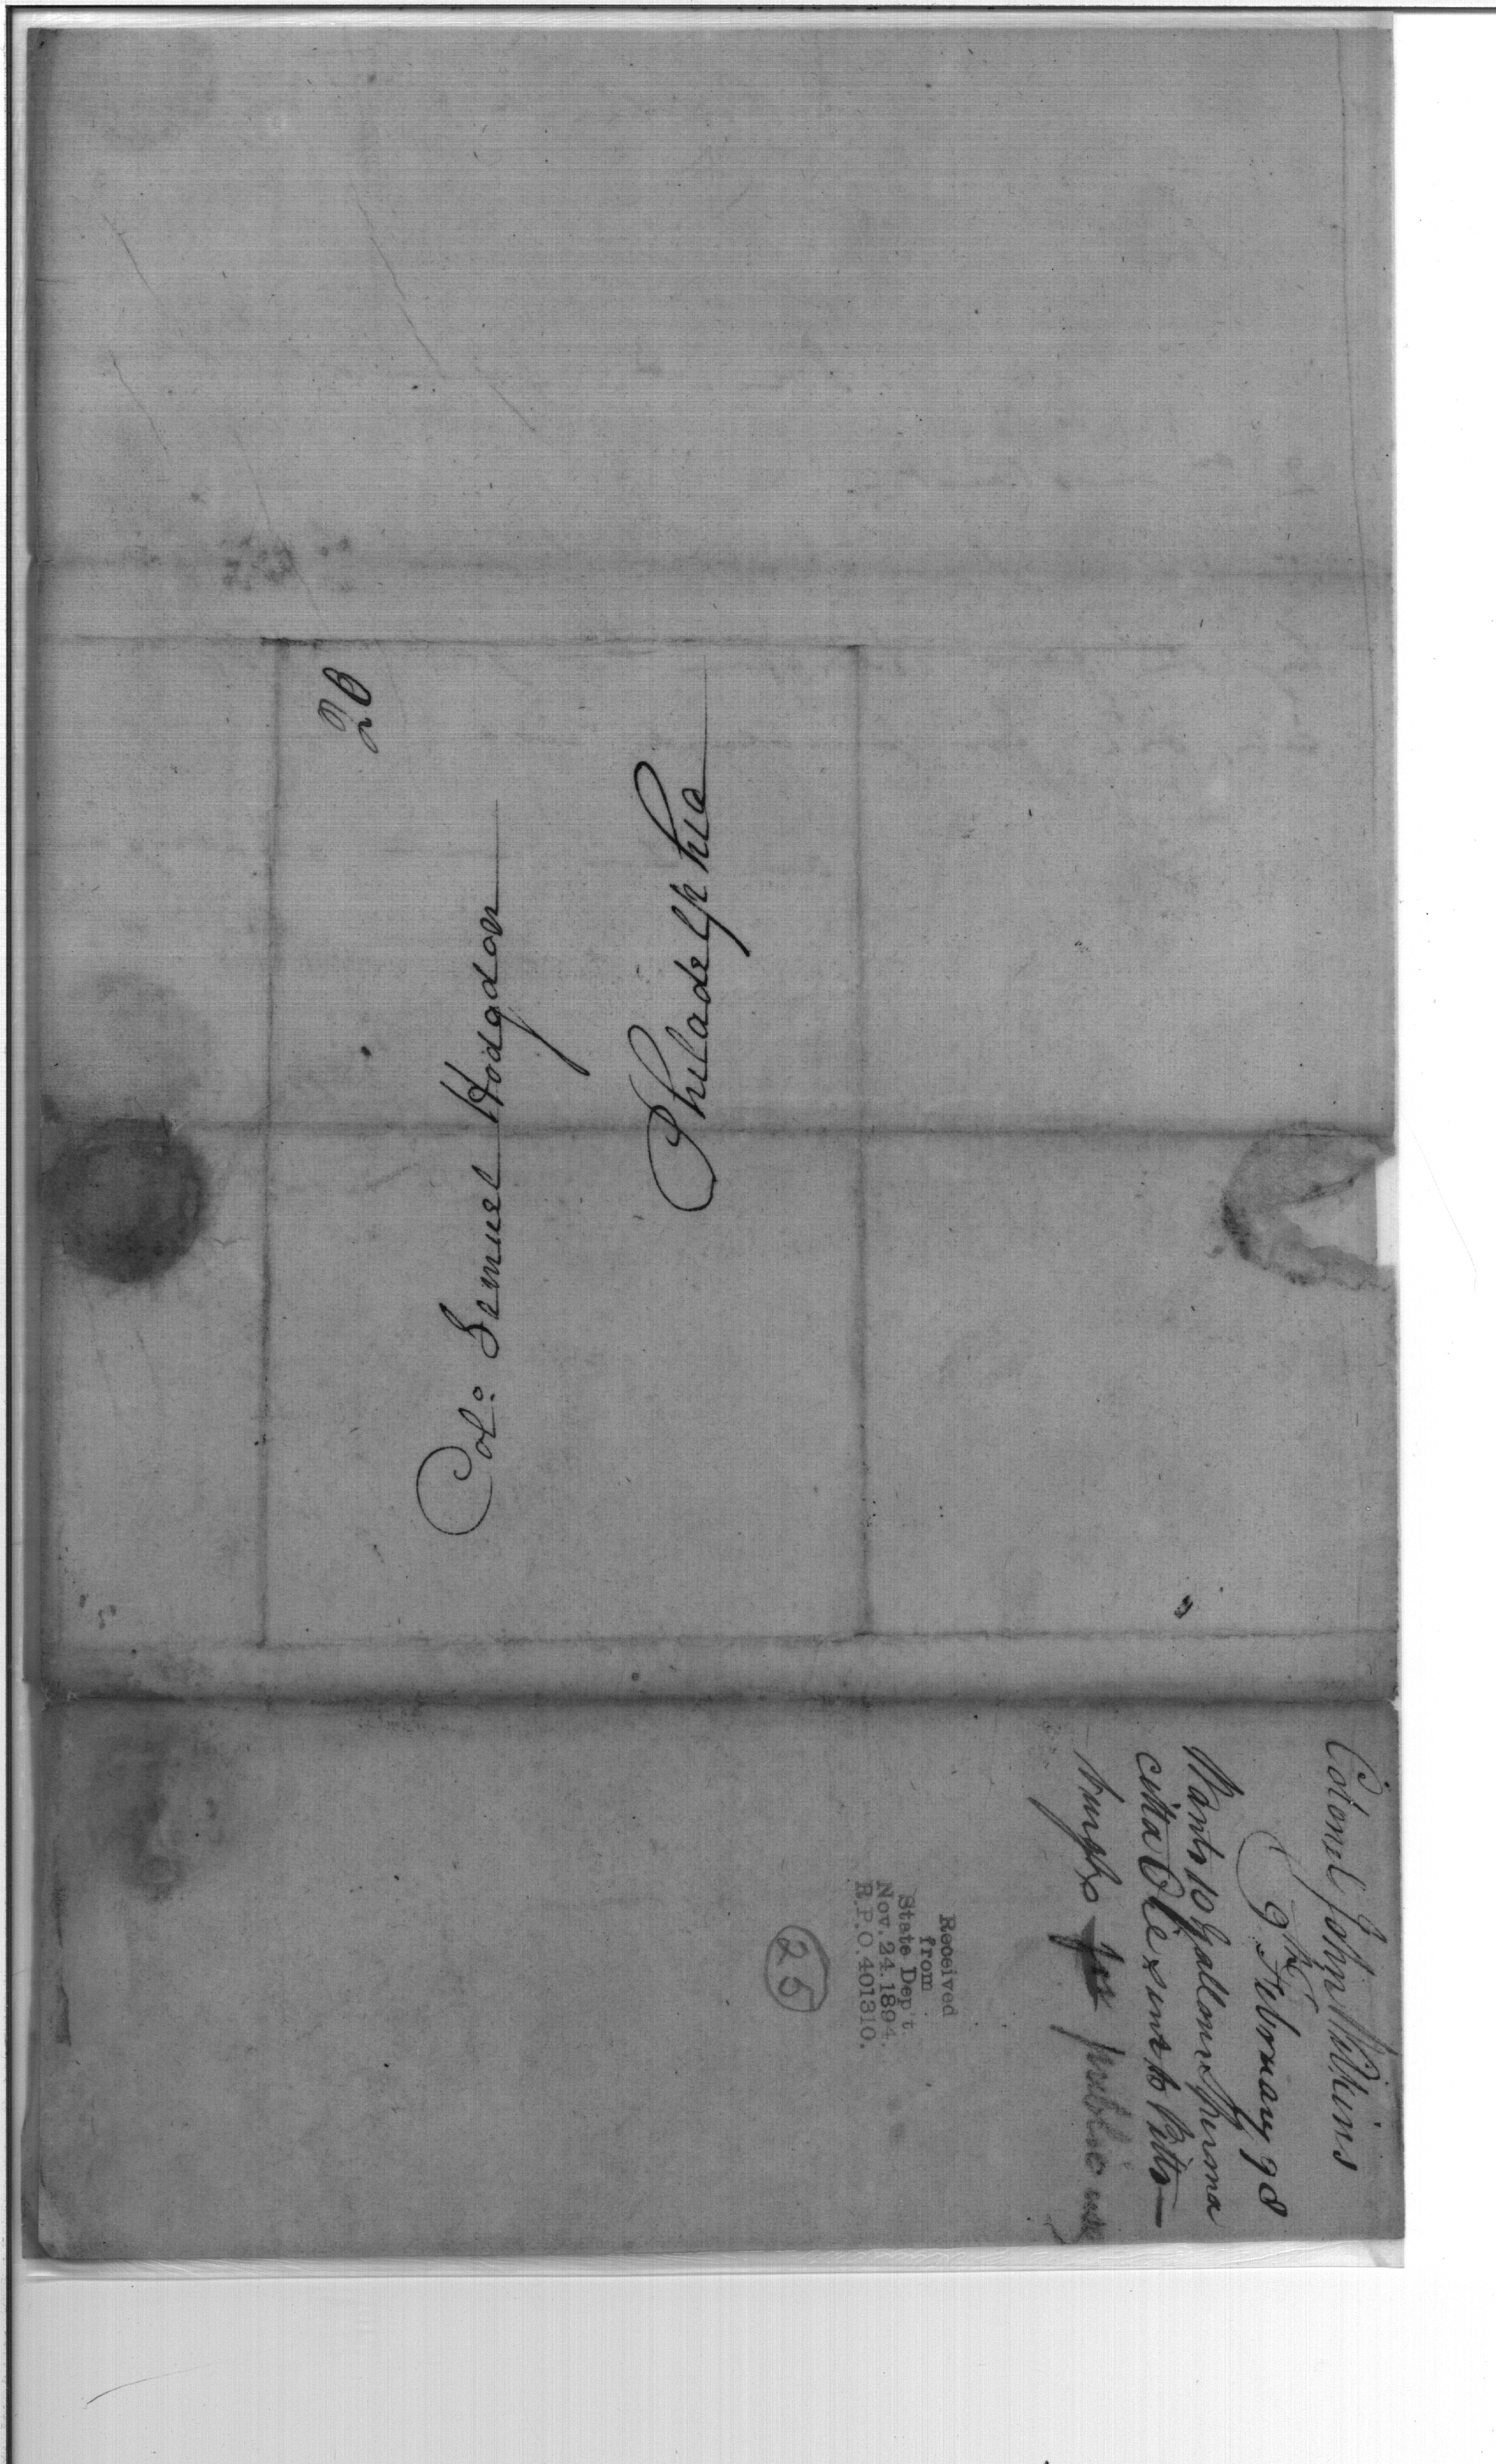 20
Col.o Samuel Hodgdon
Philadelphia
Colonel John Wilkins
9th February 98
Wants 10 Gallons Sperma
citta Oil sent to Pitts-
burgh for public use
Received
from
State Dep't.
Nov. 24. 1894.
R.P.O. 401310.
25